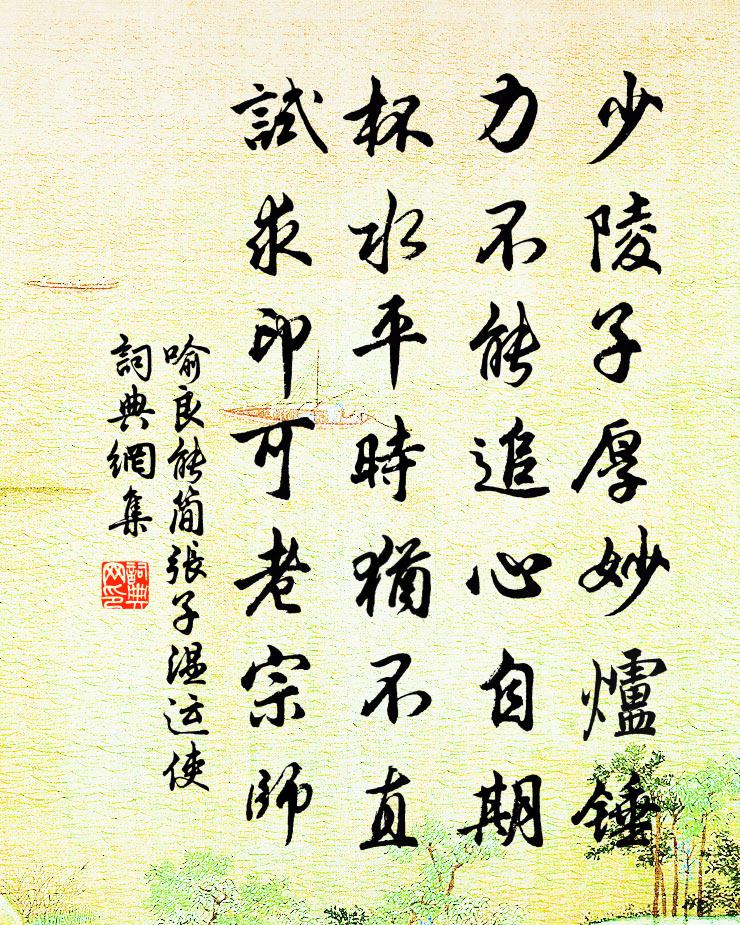 少陵子厚妙爐錘
力不能追心自期
杯水平時猶不直
試求印可老宗師
喻良能簡張子溫运使
詞典網集
詞典
网印